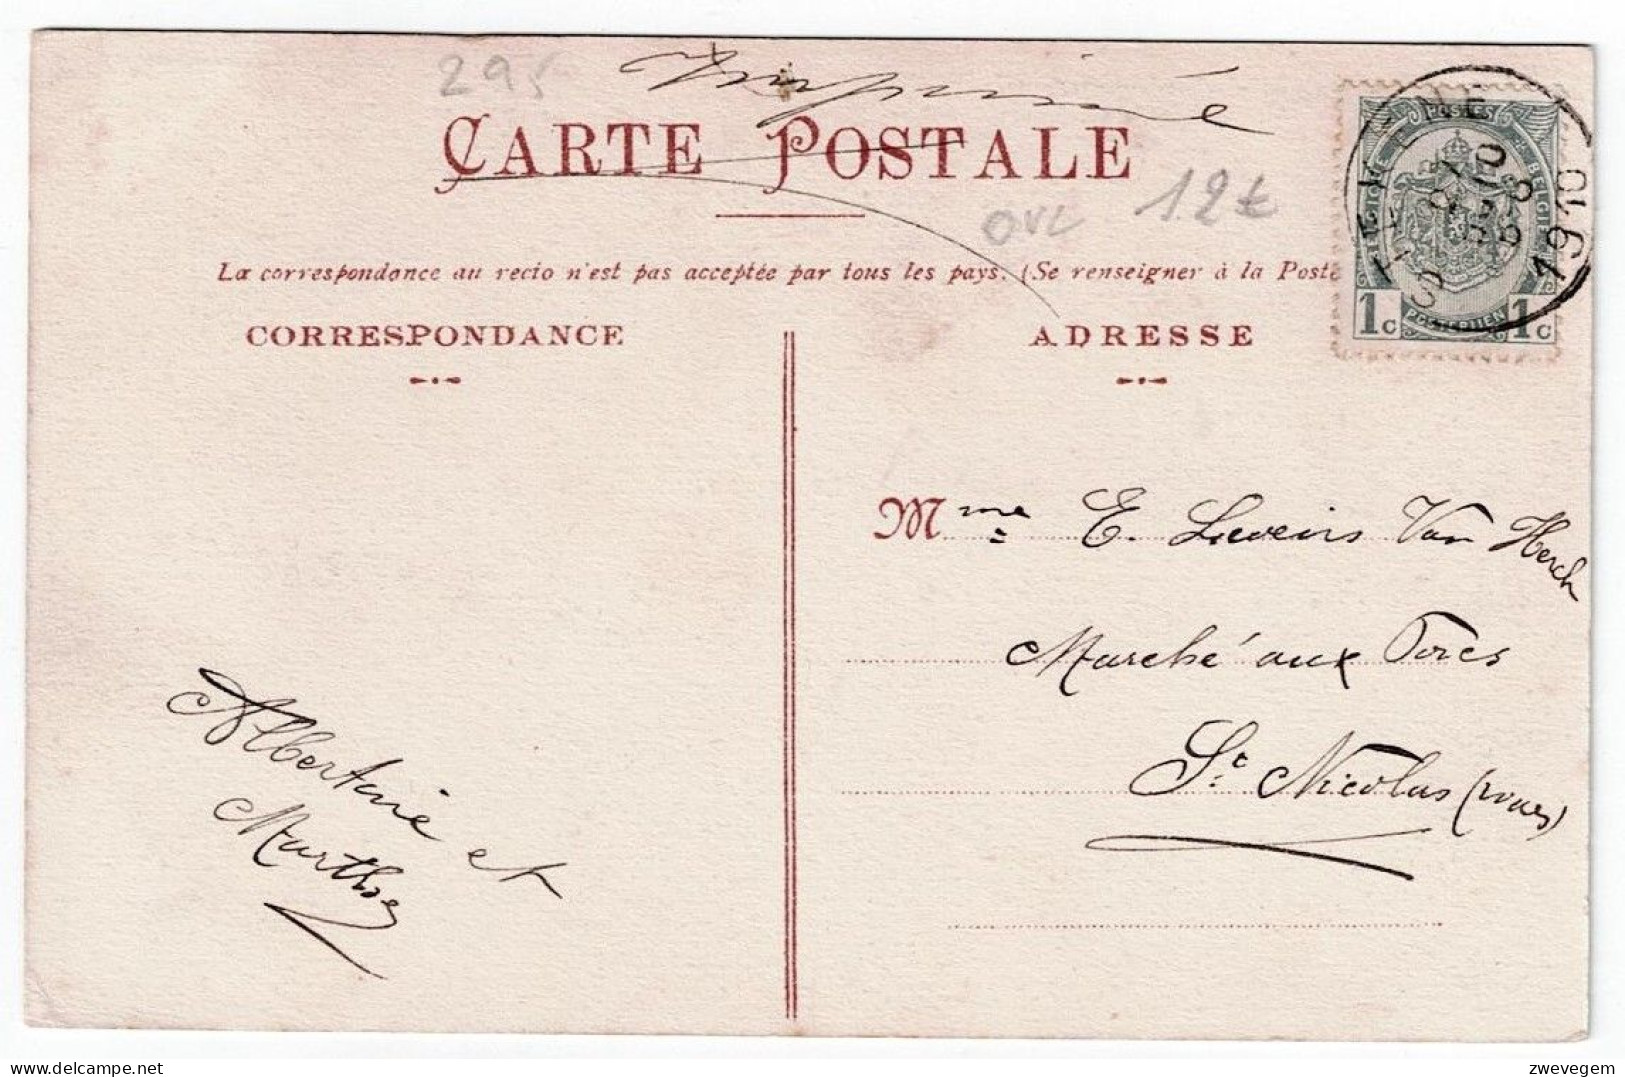 295
Imprimé
CARTE POSTALE
OVL 12€
La correspondance au recto n'est pas acceptée par tous les pays. (Se renseigner à la Poste
CORRESPONDANCE
ADRESSE
POSTES
BELGIQUE
BELGIË
POSTERIJEN
1c 1c
STEKENE
1910
Mme E. Lievens Van Herck
Marché aux
St. Nicolas (waes)
Albertine et
Marthe
delcampe.net
zwevegem